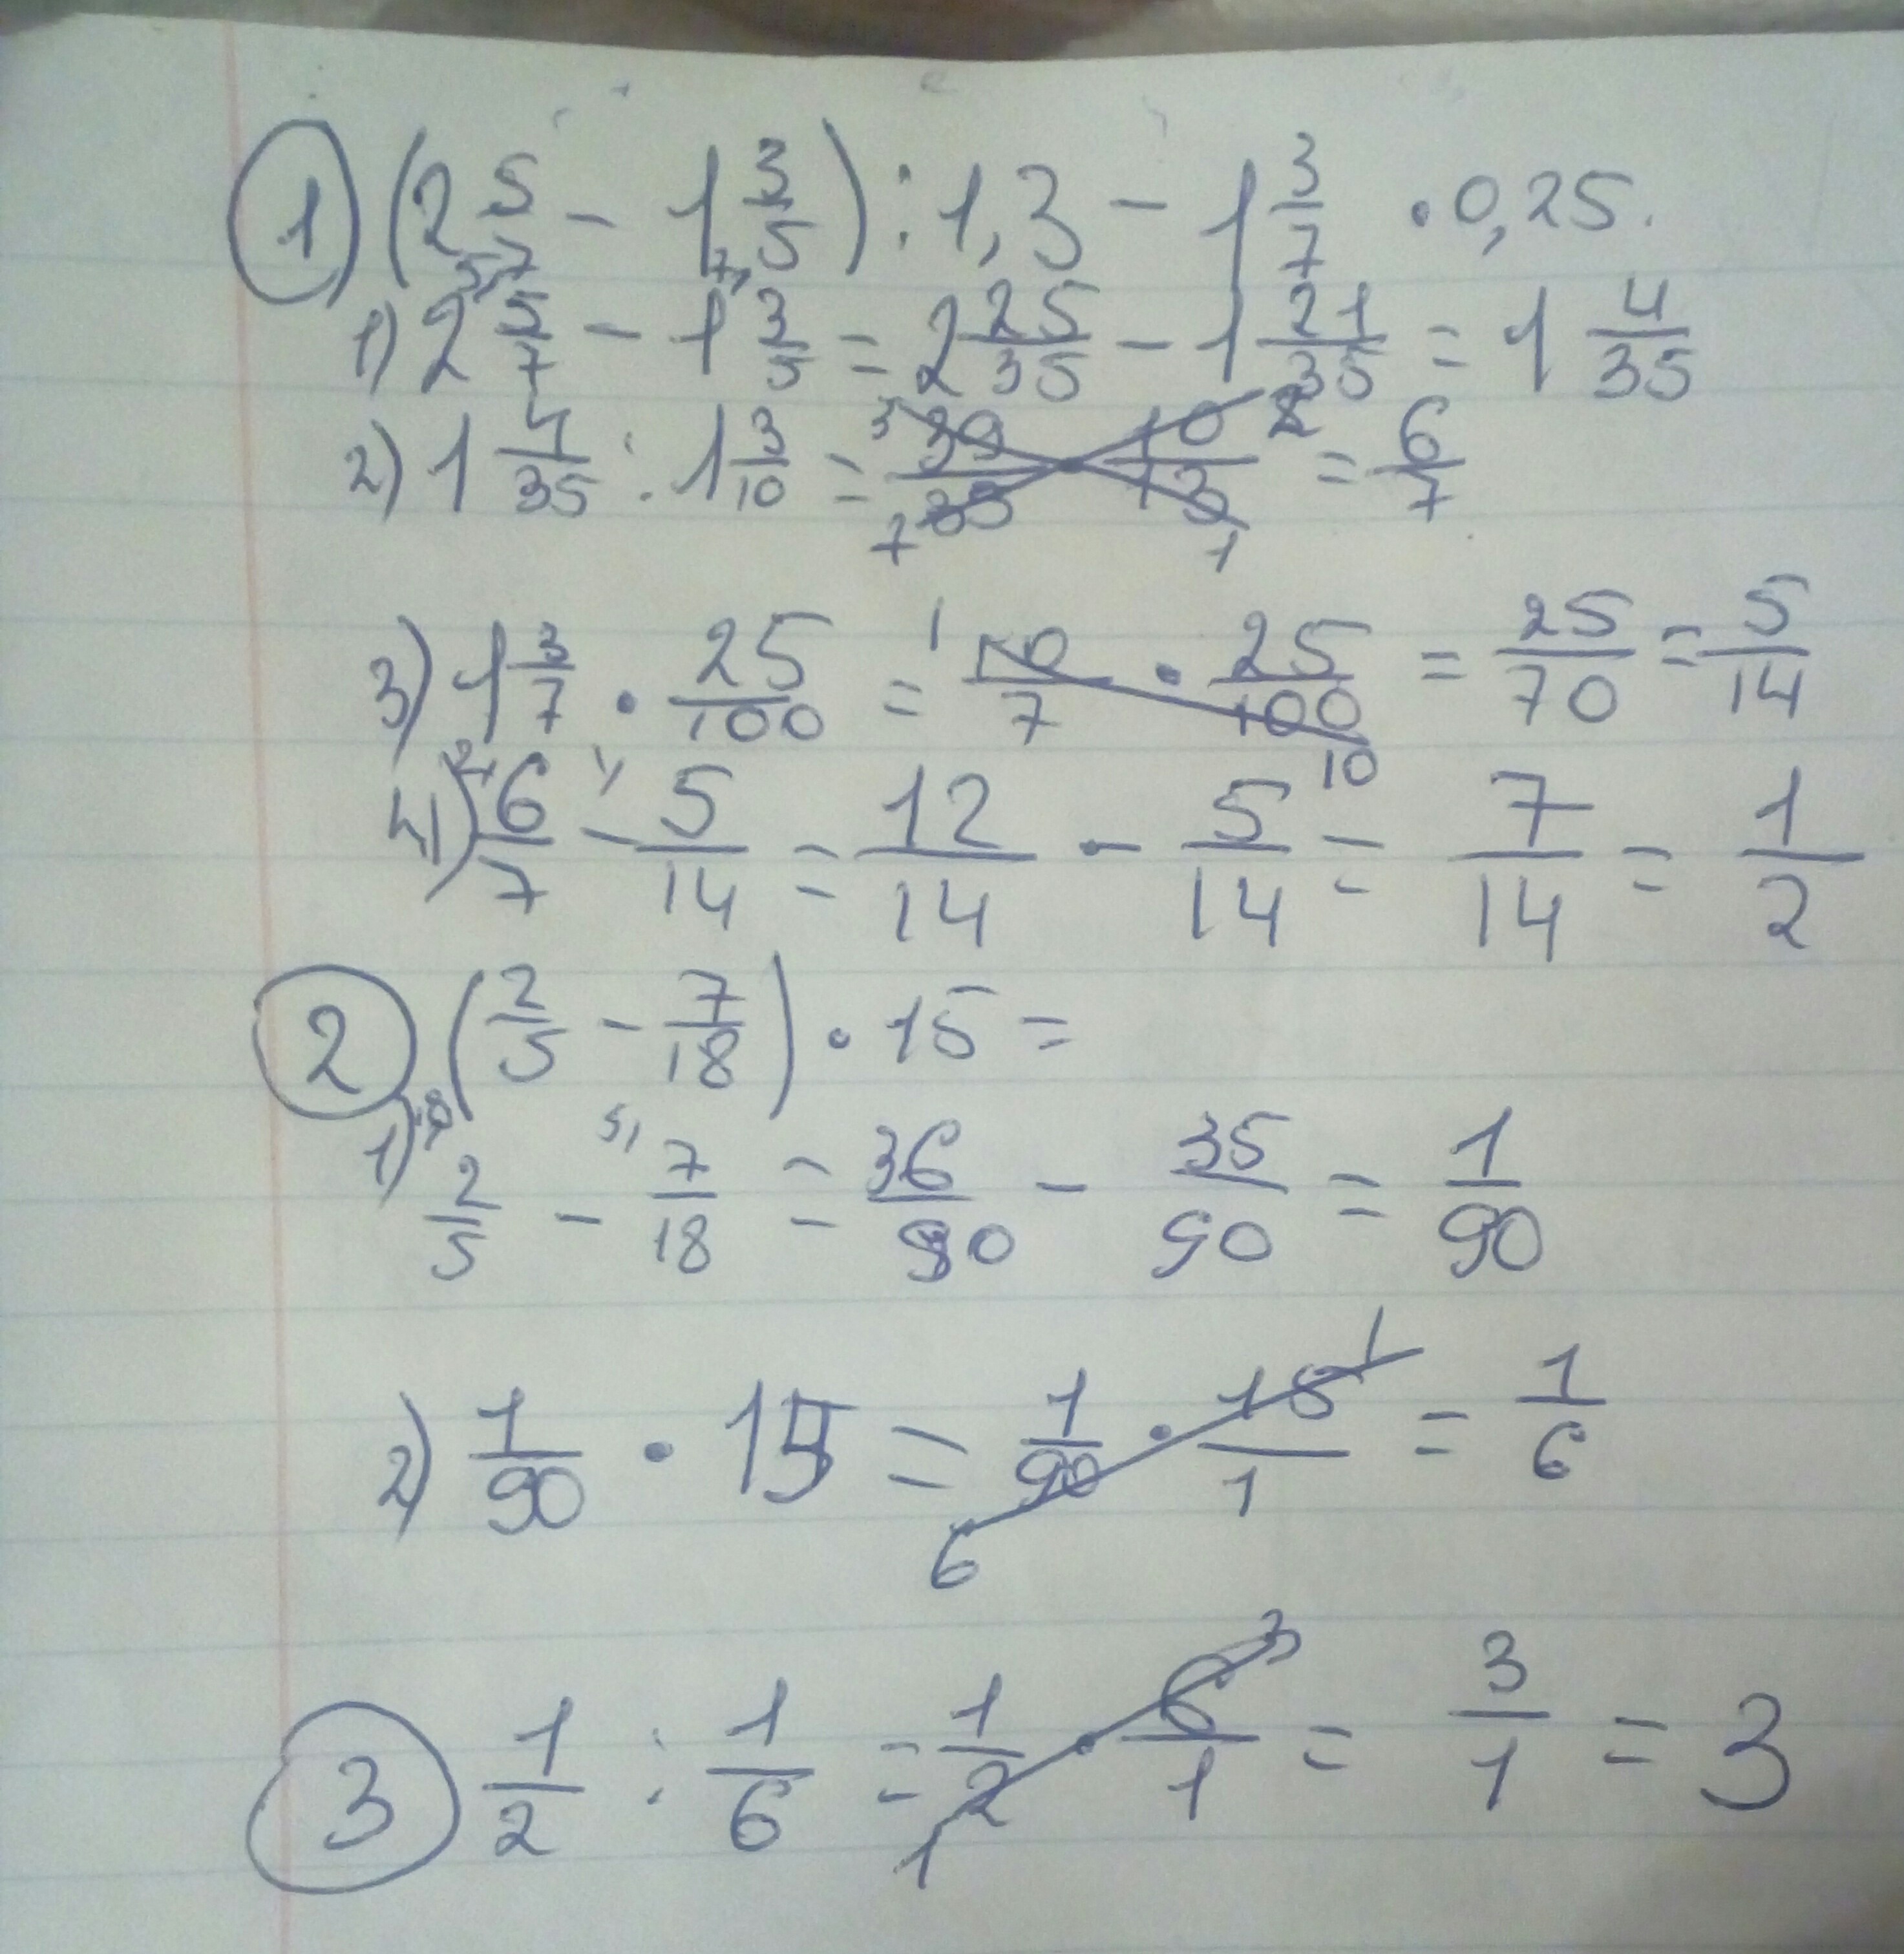 1 (2 5/7 - 1 3/5) : 1,3 - 1 3/7 · 0,25.
1) 2 5/7 - 1 3/5 = 2 25/35 - 1 21/35 = 1 4/35
2) 1 4/35 : 1 3/10 = 39/35 · 10/13 = 6/7
3) 1 3/7 · 25/100 = 10/7 · 25/100 = 25/70 = 5/14
4) 6/7 - 5/14 = 12/14 - 5/14 = 7/14 = 1/2
2 (2/5 - 7/18) · 15 =
1) 2/5 - 7/18 = 36/90 - 35/90 = 1/90
2) 1/90 · 15 = 1/90 · 15/1 = 1/6
3 1/2 : 1/6 = 1/2 · 6/1 = 3/1 = 3